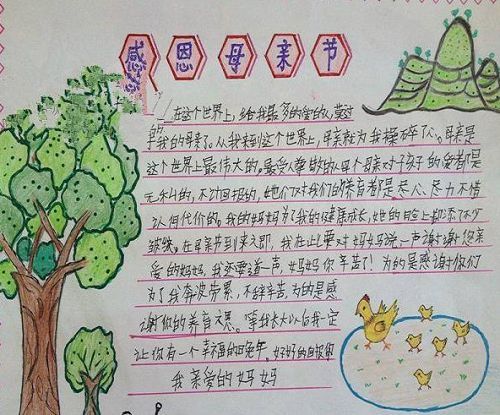 感恩母亲节
在这个世界上,给我最多的爱的人,莫过
的我的母亲了。从我来到这个世界上,母亲就为我操碎了心。母亲是
这个世界上最伟大的。最受人尊敬的。每个母亲对孩子的爱都是
无私的,不计回报的,她们对我们的养育都是尽心、尽力不惜
任何代价的。我的妈妈为了我的健康成长,她的脸上都添了不少
皱纹。在母亲节到来之即,我在此要对妈妈说一声谢谢您亲
爱的妈妈,我还要道一声,妈妈你辛苦了!为的是感谢你们
为了我奔波劳累,不辞辛苦,为的是感
谢你的养育之恩。等我长大以后我一定
让你有一个幸福的晚年。好好的回报你
我亲爱的妈妈